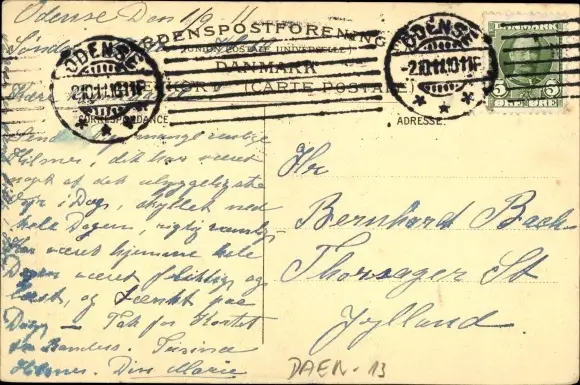 Odense Den 1/9 11
VERDENSPOSTFORENING
(UNION POSTALE UNIVERSELLE)
DANMARK
(CARTE POSTALE)
ODENSE
2.10.11.10-11F
ODENSE
2.10.11.10-11F
DANMARK
5 5
ØRE
CORRESPONDANCE
ADRESSE:
Hilsner, det har været
noget af det uhyggeligste
i Dag, skyllet ned
hele Dagen, rigtig
Har været hjemme hele
Dagen været flittig og
læst, og tænkt paa
Dig — Tak for Kortet
fra Randers. Tusinde
Hilsner. Din Marie
Hr
Bernhard Bach
Thorsager St
Jylland.
DAEN-13